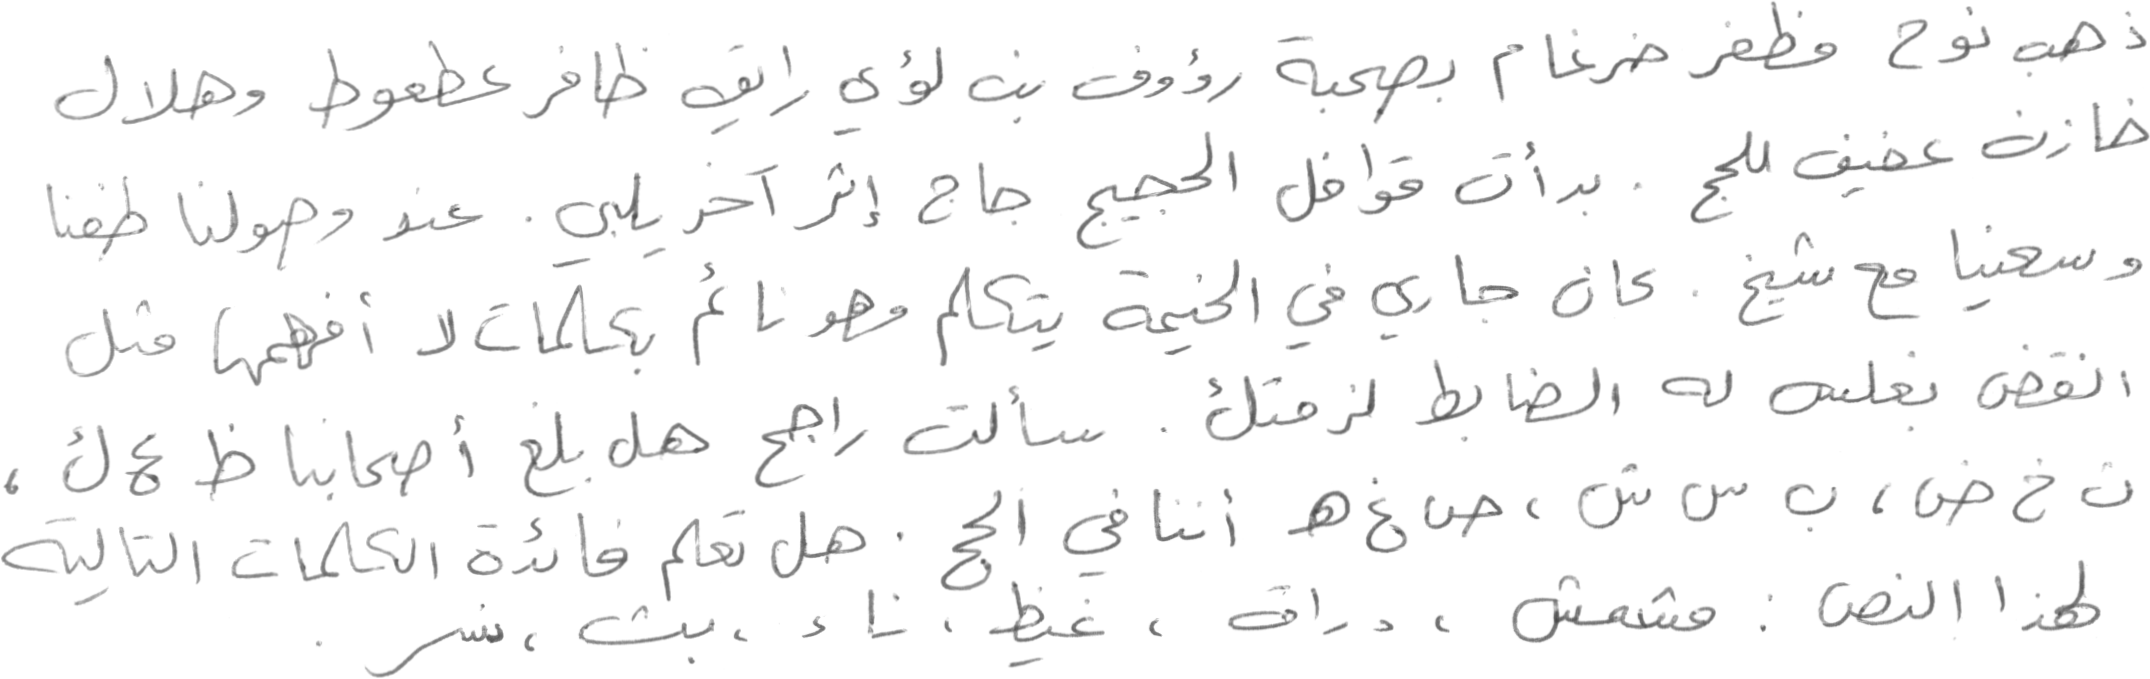 ذهب نوح مظفر ضرغام بصحبة رؤوف بن لؤي رايق ظافر عطعوط وهلال
خازن عفيف للحج . بدأت قوافل الحجيج حاج إثر آخر يلبي . عند وصولنا طفنا
وسعينا مع شيخ . كان جاري في الخيمة يتكلم وهو نائم بكلمات لا أفهمها مثل
انقض بغلس له الضابط لزمتك . سألت راجح هل بلغ أصحابنا ظ ع ك ،
ن خ ض ، ب س ش ، ص غ ه أننا في الحج . هل تعلم فائدة الكلمات التالية
لهذا النص : مشمش ، دراق ، غيظ ، ناء ، بث ، نسر .